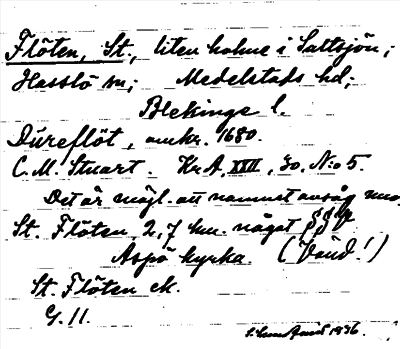 Flöten, St., liten holme i Saltsjön;
Hasslö sn; Medelstads hd;
Blekinge l.
Dureflöt, omkr. 1680.
C. M. Stuart. Kr. A. XXII, 30. N:o 5.
Det är möjl. att namnet avsåg
St. Flöten 2,7 km. något
Aspö kyrka. (Vänd!)
St. Flöten ek.
G. 11.
1936.